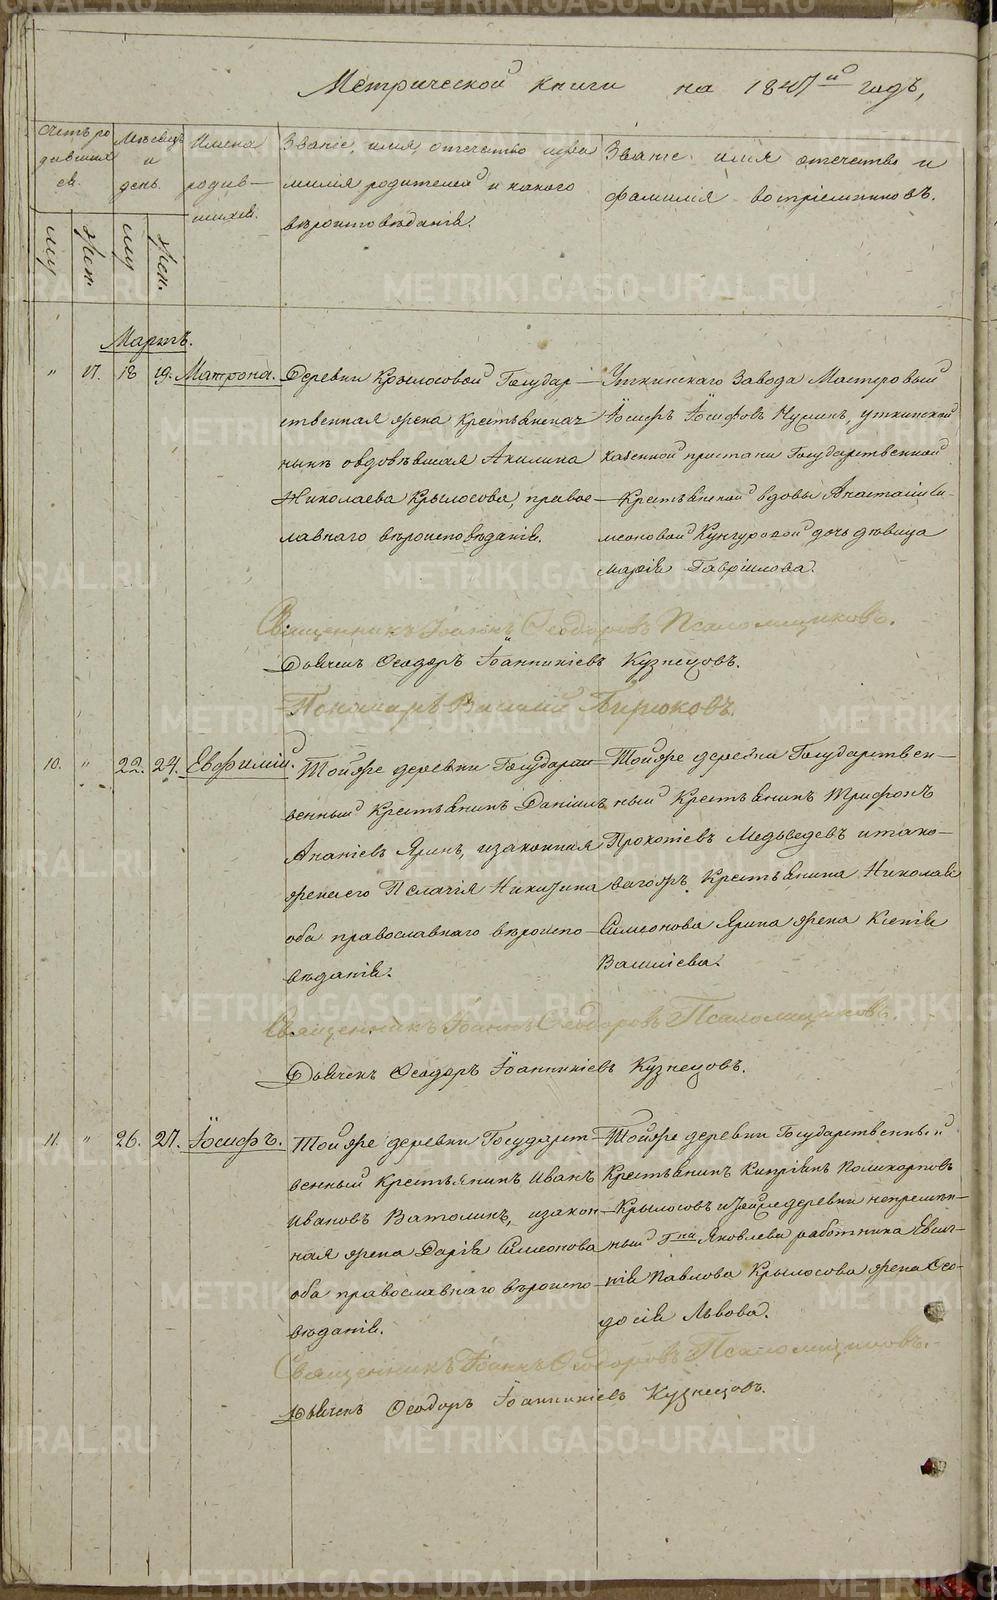 Метрической книги на 1847й годъ,
Счетъ ро
дивших
ся.
Мѣсяцъ
и
день.
Имена
родив-
шихся.
Званіе, имя, отечество и фа
милія родителей и какого
вѣроисповѣданія.
Званіе имя отечество и
фамилія воспріемниковъ.
му
жен.
му
жен.
Мартъ.
" 17. 18 19. Матрона.
Деревни Крылосовой Государ-
ственная жена Крестьянская
нынѣ овдовѣвшая Акилина
Николаева Крылосова, право-
славнаго вѣроисповѣданія.
Уткинскаго Завода Мастеровый
Іосифъ Іосифовъ, уткинской
казенной пристани Государственной
Крестьянской вдовы Анастасіи Си-
меоновой Кунгуровой дочь дѣвица
Марія Гавріилова.
Священникъ Іоаннъ Ѳеодоровъ Псаломщиковъ.
Дьячекъ Ѳеодоръ Іоанникіевъ Кузнецовъ.
Пономарь Василій Бирюковъ.
10. " 22. 24. Евфимій.
Той же деревни Государст
венный Крестьянинъ Даніилъ
Ананіевъ Яринъ, и законная
жена его Пелагія Никитина
оба православнаго вѣроиспо-
вѣданія.
Той же деревни Государствен-
ный Крестьянинъ Трифонъ
Прокопіевъ Медведевъ и тако-
ваго жъ Крестьянина Николая
Симеонова Ярина жена Ксенія
Васильева.
Священникъ Іоаннъ Ѳеодоровъ Псаломщиковъ.
Дьячекъ Ѳеодоръ Іоанникіевъ Кузнецовъ.
11. " 26. 27. Іосифъ.
Той же деревни Государст-
венный Крестьянинъ Иванъ
Ивановъ Ватолинъ, и закон-
ная жена Дарія Симеонова
оба православнаго вѣроиспо-
вѣданія.
Той же деревни Государственный
Крестьянинъ Кипріянъ Поликарповъ
Крылосовъ и той же деревни непремѣн-
ный Гна Яковлева работника Евси-
гнія Павлова Крылосова жена Ѳео-
досія Львова.
Священникъ Іоаннъ Ѳеодоровъ Псаломщиковъ.
Дьячекъ Ѳеодоръ Іоанникіевъ Кузнецовъ.
METRIKI.GASO-URAL.RU